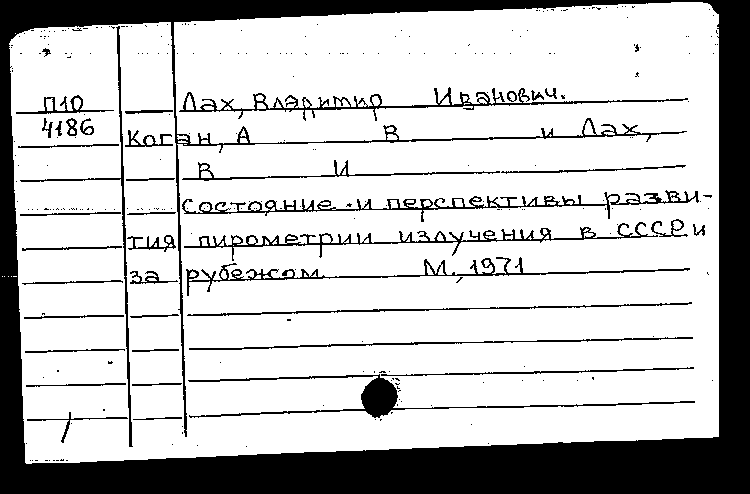 П10 Лах, Владимир Иванович.
4186 Коган, А В и Лах,
В И
Состояние и перспективы разви-
тия пирометрии излучения в СССР и
за рубежом М., 1971